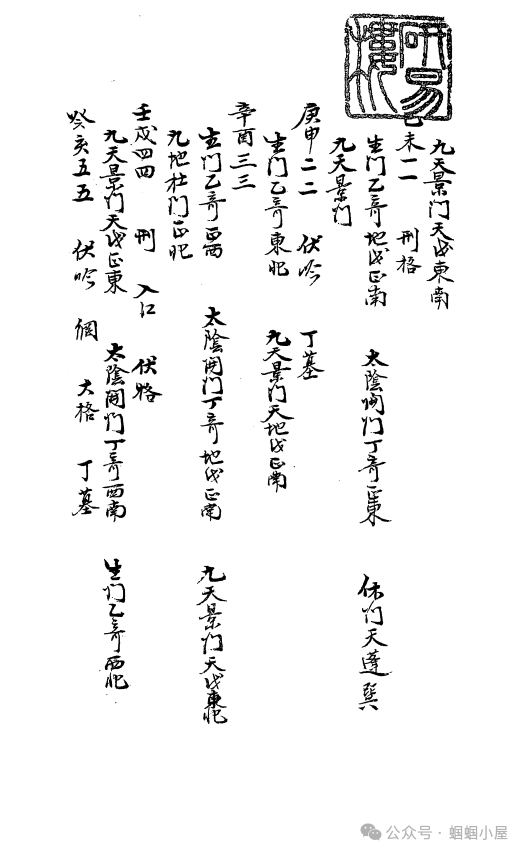 研易樓
九天景门天戊東南
己未一一 刑格
生门乙奇地戊正南 太陰開门丁奇正東 休门天蓬巽
九天景门
庚申二二 伏吟 丁墓
生门乙奇東北 九天景门天地戊正南
辛酉三三
生门乙奇正西 太陰開门丁奇地戊正南 九天景门天戊東北
九地杜门正北
壬戌四四 刑 入江 伏格
九天景门天戊正東 太陰開门丁奇西南 生门乙奇西北
癸亥五五 伏吟 網 大格 丁墓
公众号 · 蝈蝈小屋